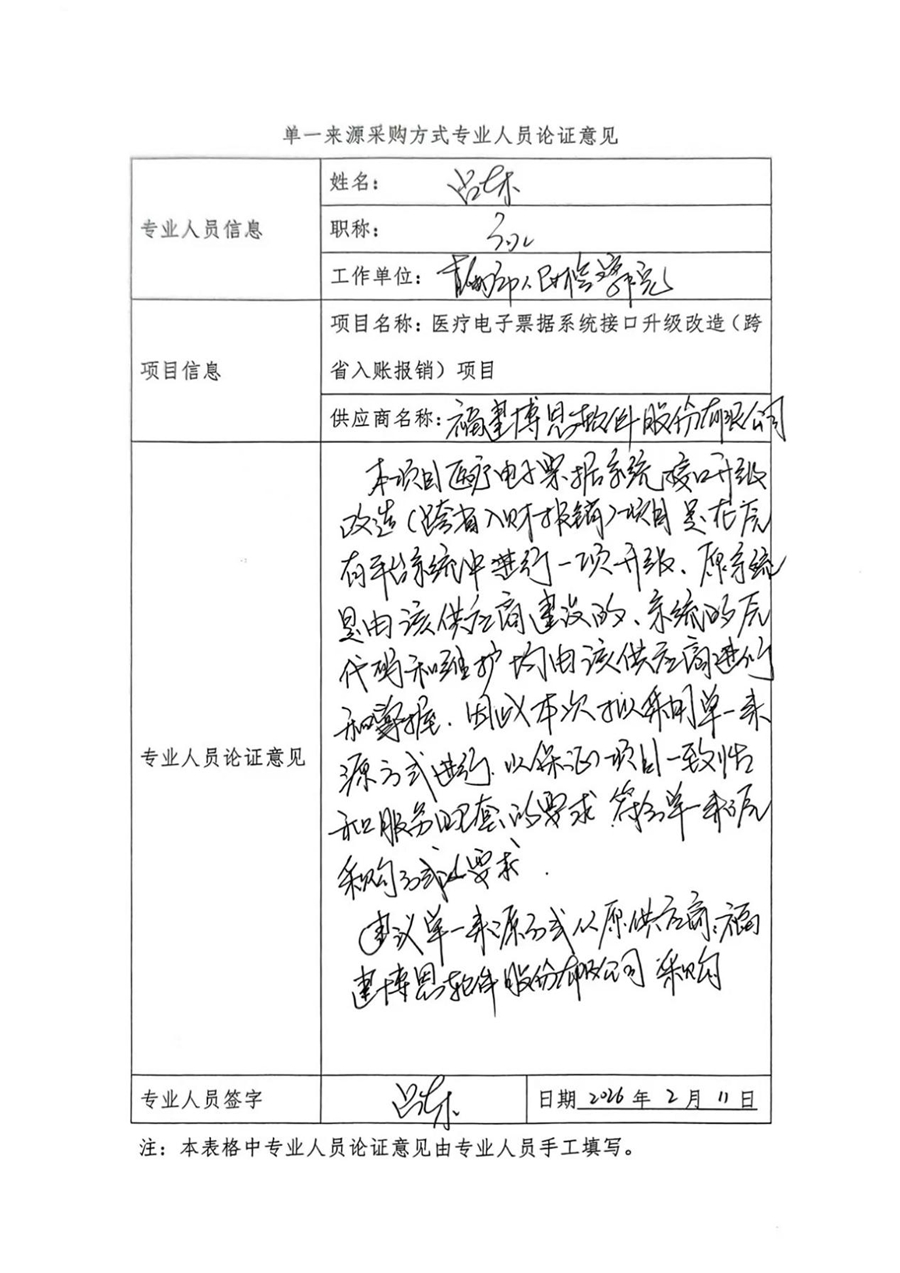 单一来源采购方式专业人员论证意见
专业人员信息
姓名：吕东
职称：
工作单位：人民检察院
项目信息
项目名称：医疗电子票据系统接口升级改造（跨
省入账报销）项目
供应商名称：福建博思软件股份有限公司
专业人员论证意见
本项目医疗电子票据系统接口升级
改造（跨省入财报销）项目是在原
有平台系统中进行一项升级、原系统
是由该供应商建设的、系统的原
代码和维护均由该供应商进行
和掌握．因以本次拟采用单一来
源方式进行．以保证项目一致性
和服务配套的要求．符合单一来源
采购方式的要求．
建议单一来源方式从原供应商：福
建博思软件股份有限公司采购
专业人员签字
吕东
日期 2026 年 2 月 11 日
注：本表格中专业人员论证意见由专业人员手工填写。